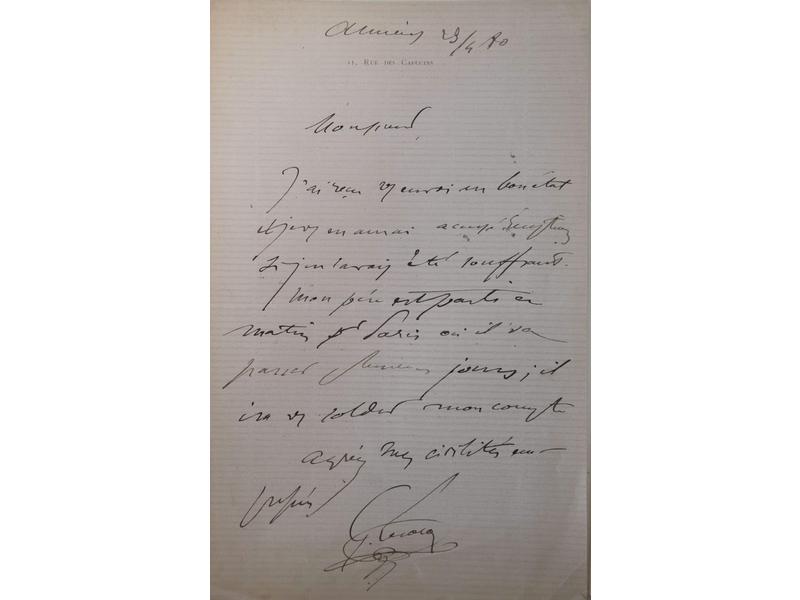 Amiens 23/4 80
11, Rue des Capucins
Monsieur
J'ai reçu vs envoi en bon état
et je vs en aurai accusé
si je n'avais été souffrant.
Mon père est parti ce
matin pr Paris où il va
passer plusieurs jours ; il
ira vs solder mon compte
agréez mes civilités em-
pressées